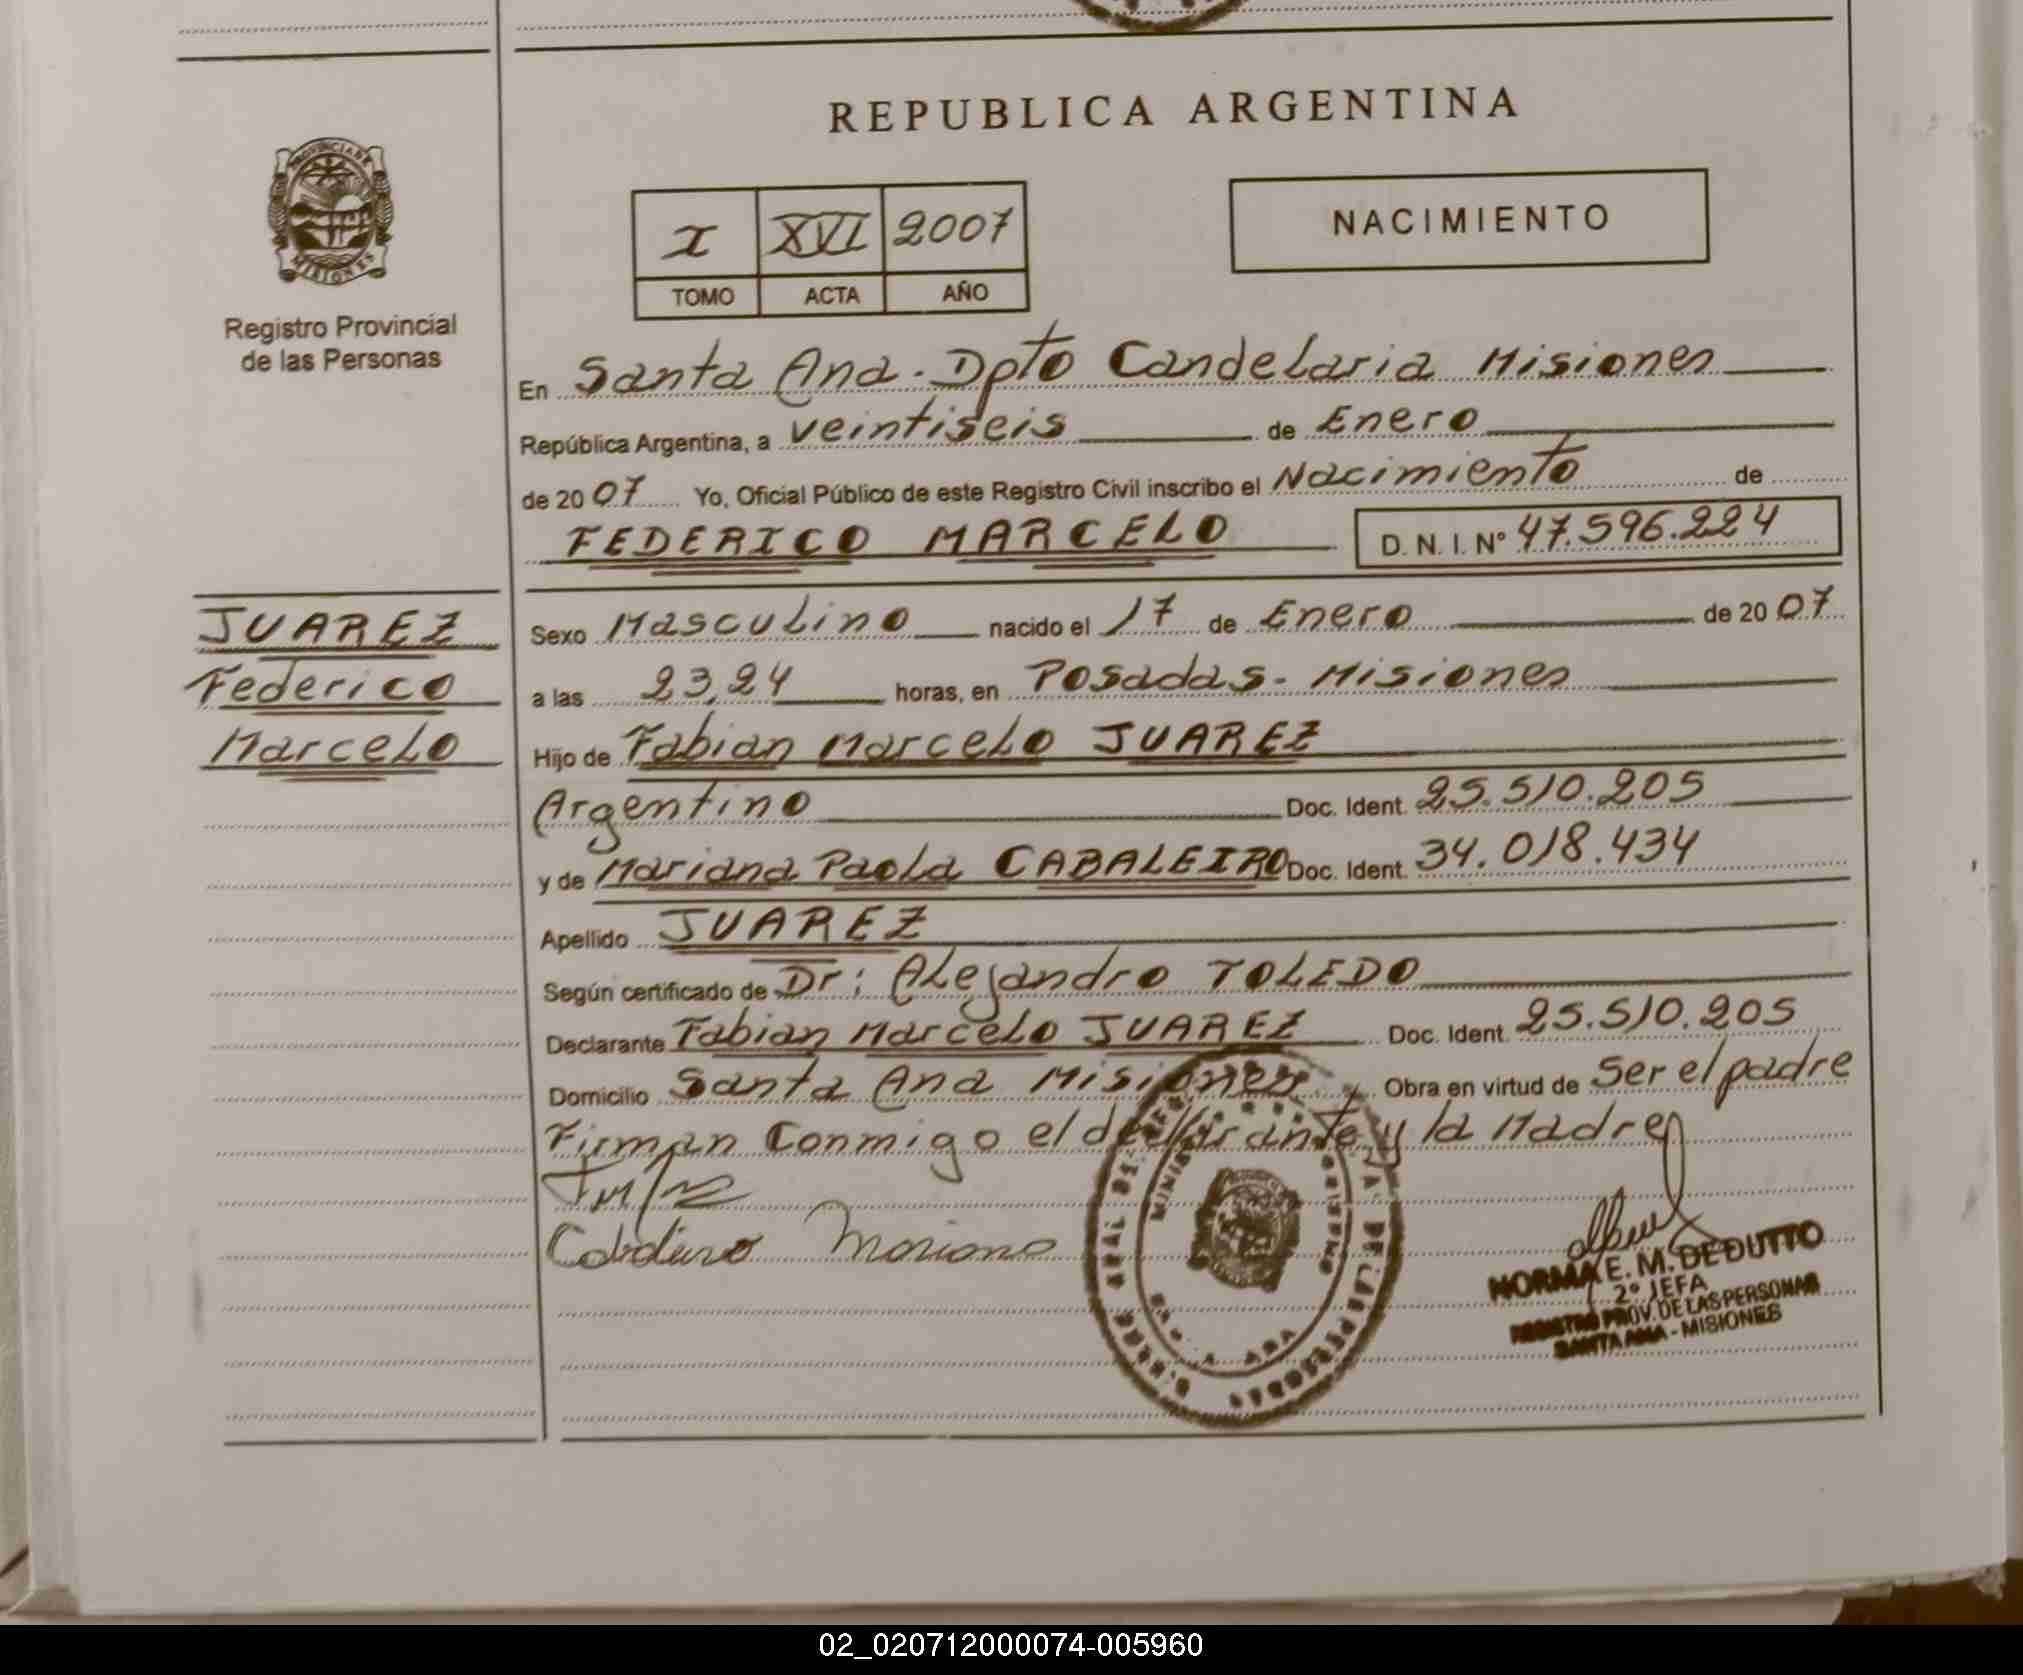 REPUBLICA ARGENTINA
PROVINCIA DE
MISIONES
Registro Provincial
de las Personas
I XVI 2007
TOMO ACTA AÑO
NACIMIENTO
En Santa Ana. Dpto Candelaria Misiones
República Argentina, a veintiseis de Enero
de 2007 Yo, Oficial Público de este Registro Civil inscribo el Nacimiento de
FEDERICO MARCELO D. N. I. Nº 47.596.224
JUAREZ
Federico
Marcelo
Sexo Masculino nacido el 17 de Enero de 2007
a las 23,24 horas, en Posadas - Misiones
Hijo de Fabian Marcelo JUAREZ
Argentino Doc. Ident. 25.510.205
y de Mariana Paola CABALEIRO Doc. Ident. 34.018.434
Apellido JUAREZ
Según certificado de Dr: Alejandro TOLEDO
Declarante Fabian Marcelo JUAREZ Doc. Ident. 25.510.205
Domicilio Santa Ana Misiones Obra en virtud de Ser el padre
Firman Conmigo el declarante y la Madre
NORMA E. M. DE DUTTO
2º JEFA
REGISTRO PROV. DE LAS PERSONAS
SANTA ANA - MISIONES
02_020712000074-005960